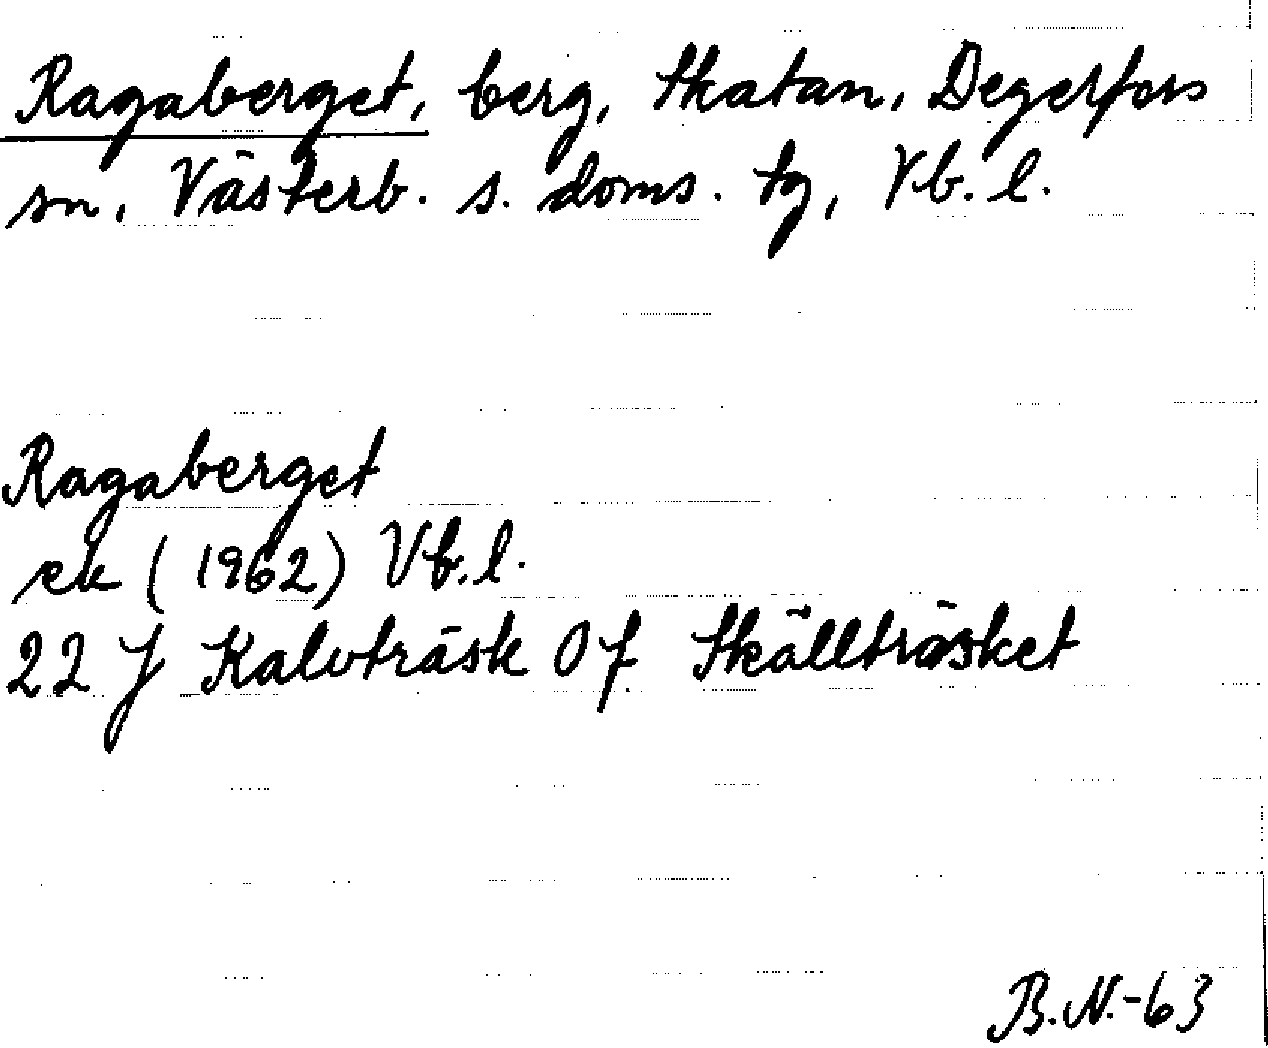 Ragaberget, berg, Skatan, Degerfors
sn, Västerb. s. doms. tg, Vb. l.
Ragaberget
ek (1962) Vb.l.
22 J Kalvträsk 0 f Skällträsket
B.N.-63